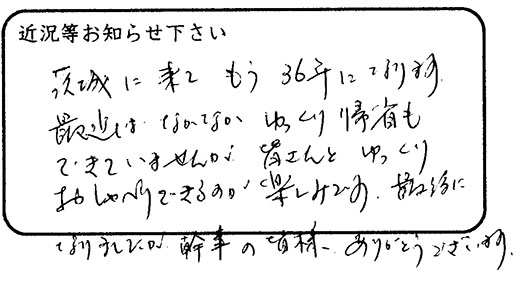 近況等お知らせ下さい
茨城に来て もう 36年になります.
最近は なかなか ゆっくり 帰省も
できていませんが 皆さんと ゆっくり
おしゃべりできるのが 楽しみです. 最後に
なりましたが 幹事の皆様 ありがとうございます.